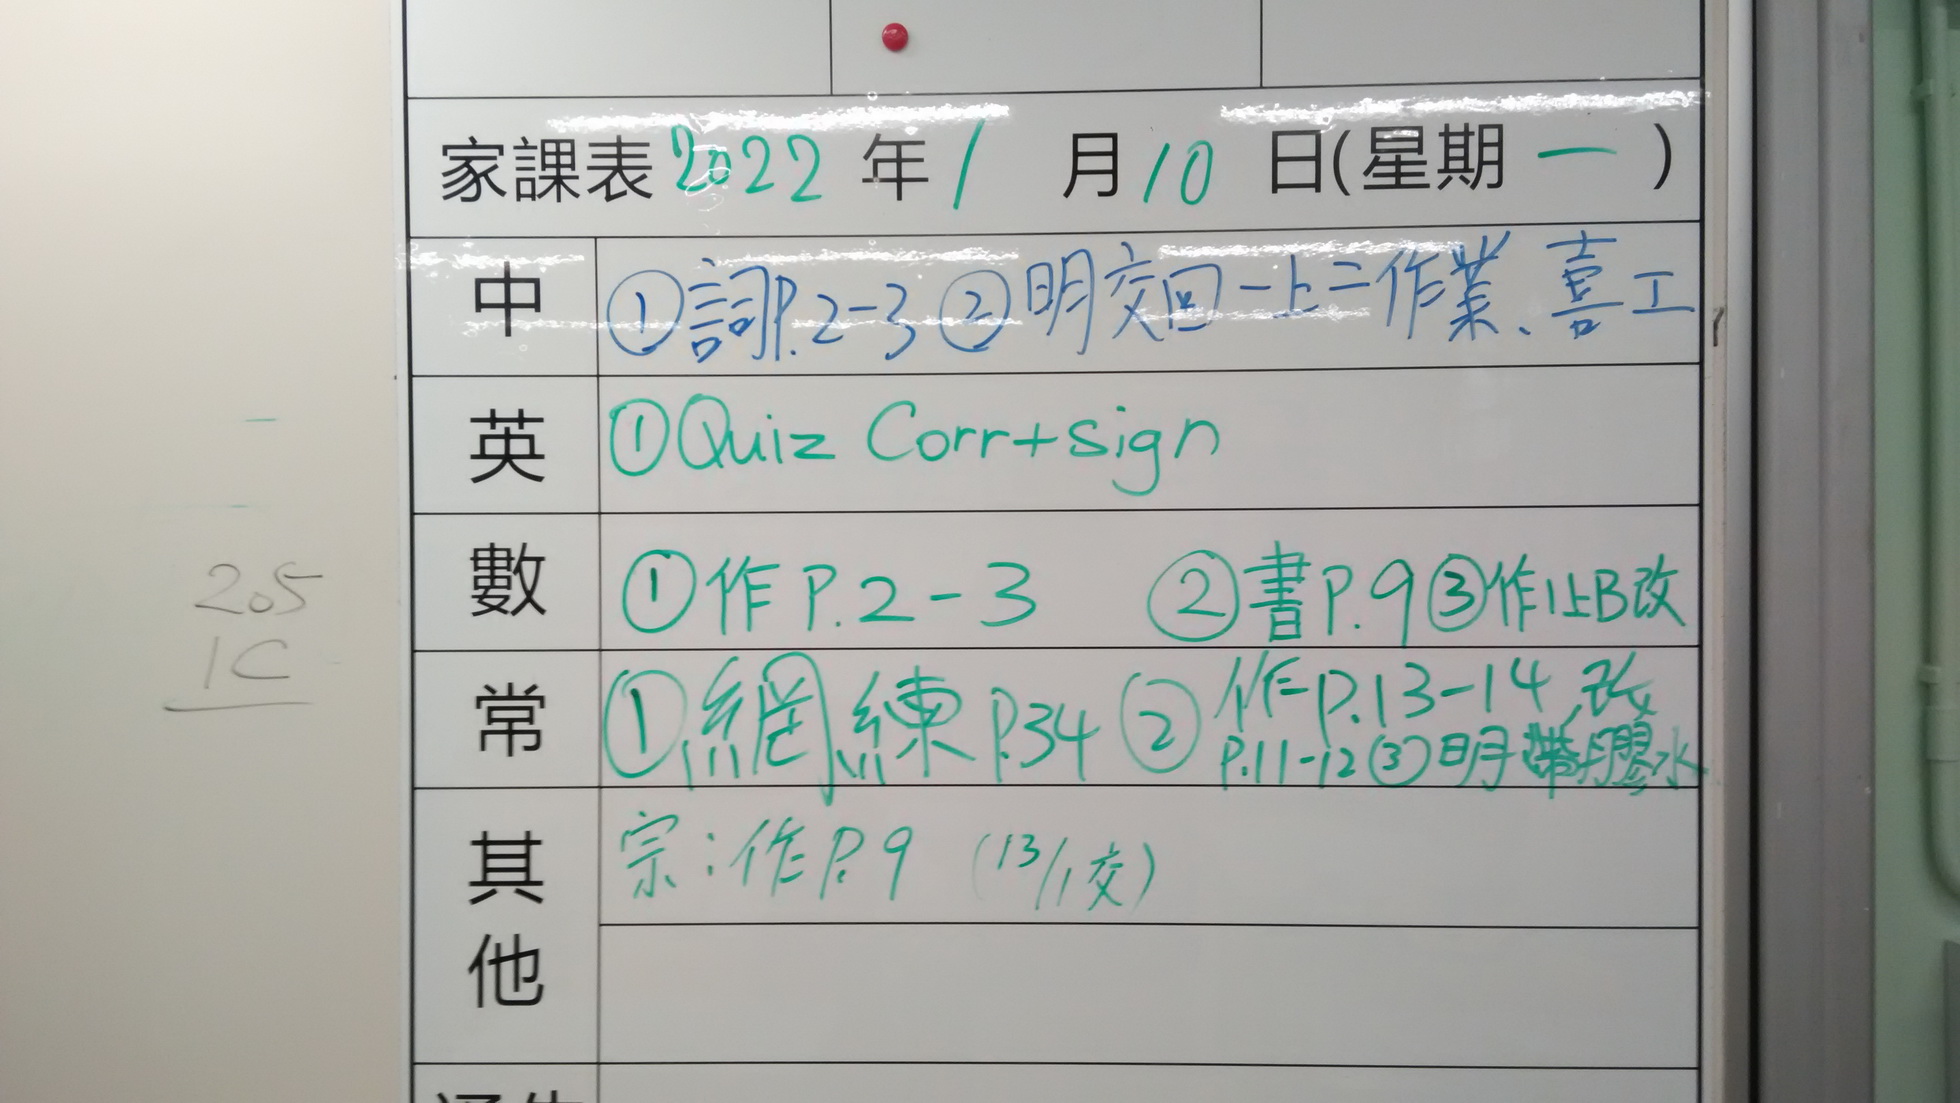 家課表 2022 年 1 月 10 日(星期 一 )
中 ①詞P.2-3 ②明交回一上二作業、喜工
英 ①Quiz Corr+sign
數 ①作 P.2-3 ②書P.9 ③作1上B改
常 ①網練 P.34 ② 作P.13-14,改
P.11-12 ③明帶膠水
其他 宗:作P.9 (13/1交)
205
1C